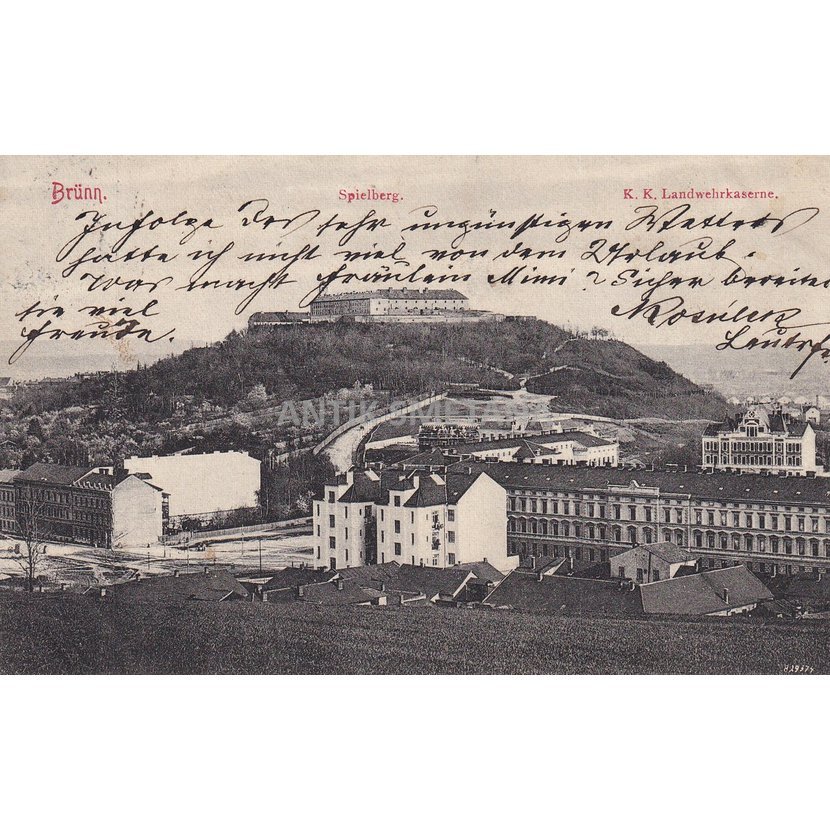 Brünn.
Spielberg.
K. K. Landwehrkaserne.
Infolge des sehr ungünstigen Wetters
hatte ich nicht viel von dem Urlaub.
Was macht Fräulein Mimi? Sicher bereitet
sie viel
Freude.
ANTIK SMETANA